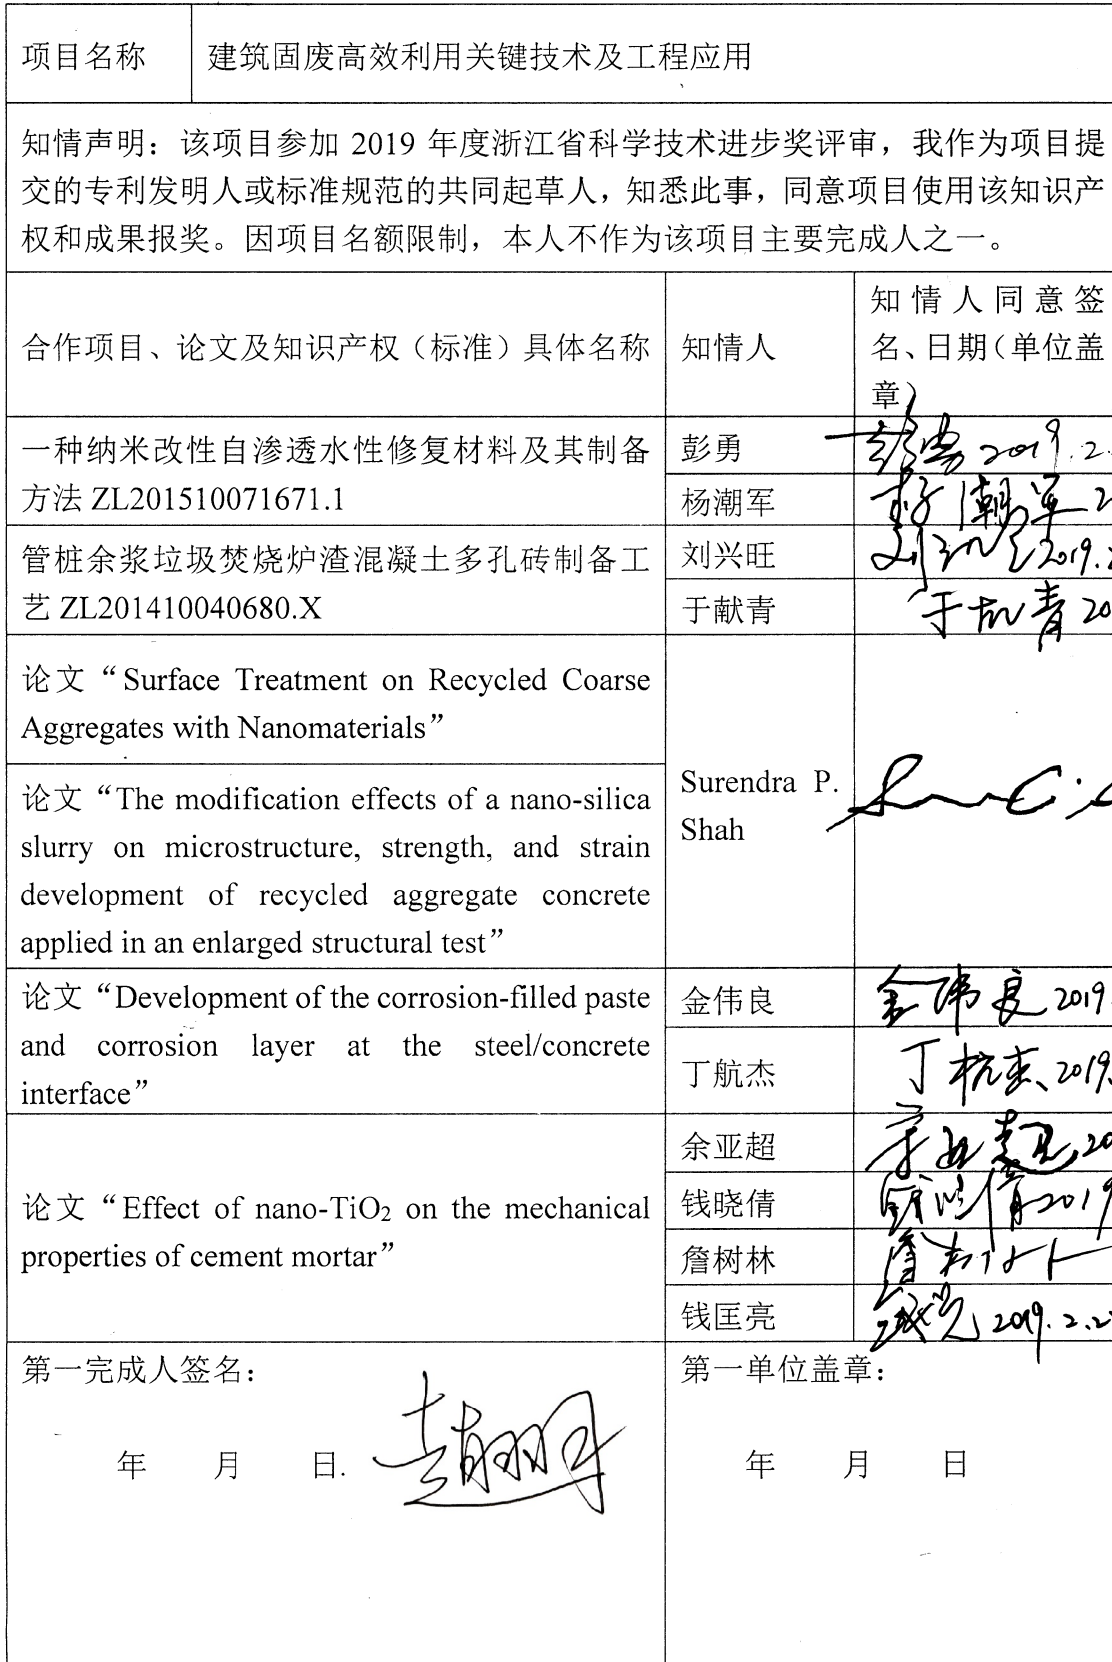 项目名称 建筑固废高效利用关键技术及工程应用
知情声明：该项目参加 2019 年度浙江省科学技术进步奖评审，我作为项目提
交的专利发明人或标准规范的共同起草人，知悉此事，同意项目使用该知识产
权和成果报奖。因项目名额限制，本人不作为该项目主要完成人之一。
合作项目、论文及知识产权（标准）具体名称
知情人
知情人同意签
名、日期（单位盖
章）
一种纳米改性自渗透水性修复材料及其制备
方法 ZL201510071671.1
彭勇
彭勇 2019.2.
杨潮军
杨潮军 2
管桩余浆垃圾焚烧炉渣混凝土多孔砖制备工
艺 ZL201410040680.X
刘兴旺
刘兴旺 2019.
于献青
于献青 20
论文“Surface Treatment on Recycled Coarse
Aggregates with Nanomaterials”
论文“The modification effects of a nano-silica
slurry on microstructure, strength, and strain
development of recycled aggregate concrete
applied in an enlarged structural test”
Surendra P.
Shah
论文“Development of the corrosion-filled paste
and corrosion layer at the steel/concrete
interface”
金伟良
金伟良 2019
丁航杰
丁杭杰 2019.
论文“Effect of nano-TiO2 on the mechanical
properties of cement mortar”
余亚超
余亚超 20
钱晓倩
钱晓倩 2019
詹树林
詹树林
钱匡亮
2019.2.2
第一完成人签名：
年 月 日.
第一单位盖章：
年 月 日